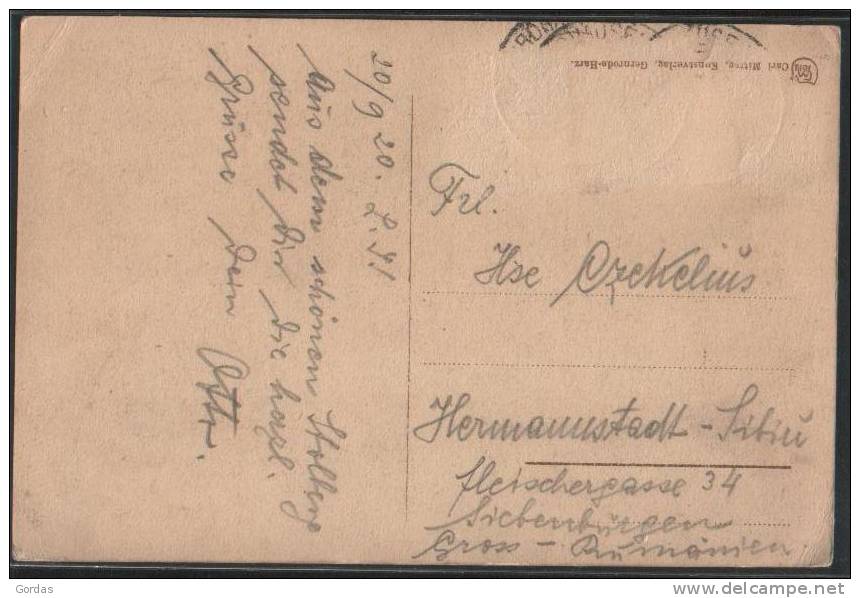 20/9 20. L. J.!
Aus dem schönen Stolberg
sendet Dir die herzl.
Grüsse Dein Otto.
Carl Mittag, Kunstverlag, Gernrode-Harz.
Frl.
Ilse Czekelius
Hermannstadt - Sibiu
Fleischergasse 34
Siebenbürgen
Gross - Rumänien.
Gordas
delcampe.net